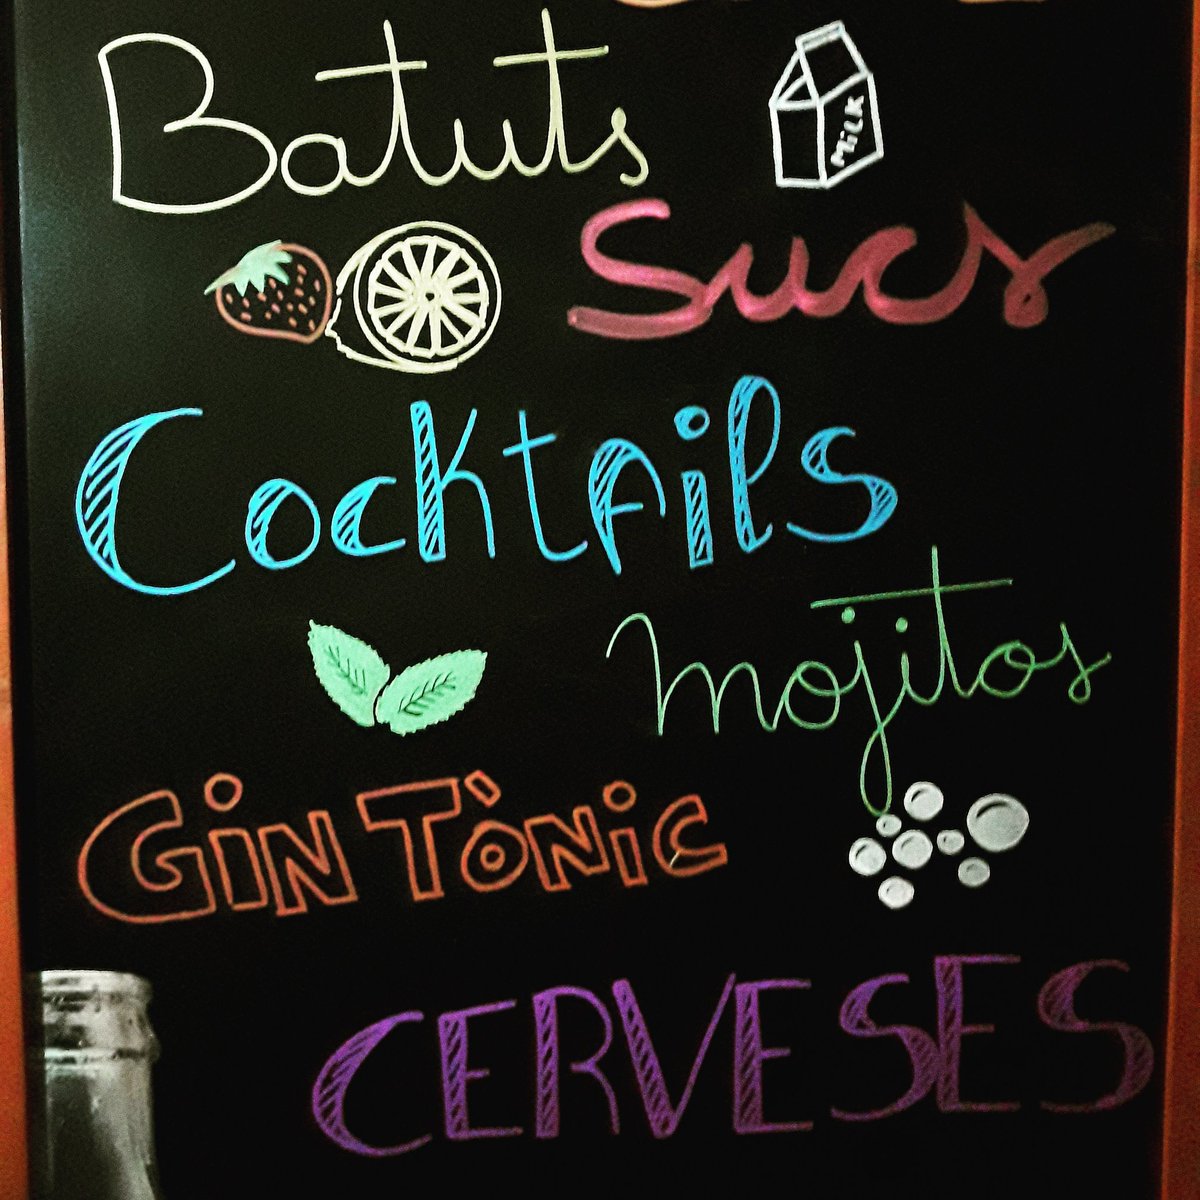 Batuts
MiLK
Sucs
Cocktails
Mojitos
Gin Tònic
CERVESES